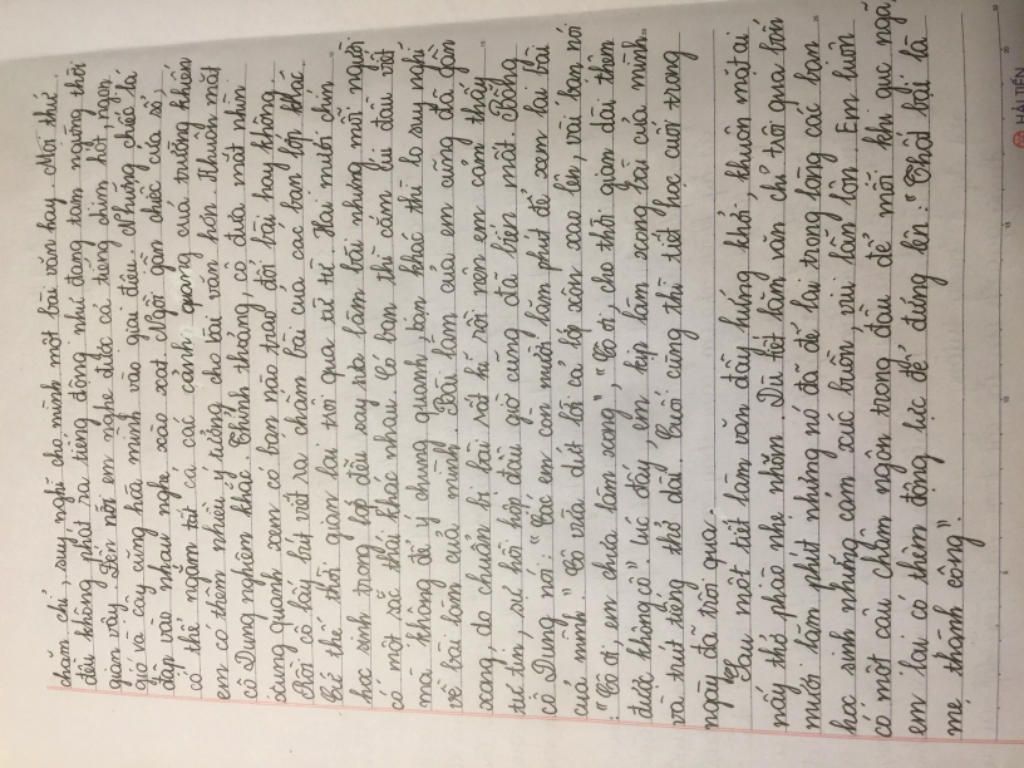 chăm chỉ, suy nghĩ cho mình một bài văn hay. Mọi thứ
đều không phát ra tiếng động như đang tạm ngưng thời
gian vậy. Đến nỗi em nghe được cả tiếng chim hót, ngọn
gió và cây cũng hòa mình vào giai điệu. Những chiếc lá
đập vào nhau nghe xào xạt. Ngồi gần chiếc cửa sổ,
có thể ngắm tất cả các cảnh quang cuả trường khiến
em có thêm nhiều ý tưởng cho bài văn hơn. Khuôn mặt
cô Dung nghiêm khắc. Thỉnh thoảng, cô đưa mắt nhìn
xung quanh xem có bạn nào trao đổi bài hay không.
Rồi cô lấy bút viết ra chấm bài của các bạn lớp khác.
Cứ thế thời gian lại trôi qua từ từ. Hai mươi chín
học sinh trong lớp đều say sưa làm bài nhưng mỗi người
có một sắc thái khác nhau. Có bạn thì cắm cúi đầu viết
mà không để ý chung quanh, bạn khác thì lo suy nghĩ
về bài làm cuả mình. Bài làm của em cũng đã dần
xong, do chuẩn bị bài rất kĩ rồi nên em cảm thấy
tự tin, sự hồi hộp đầu giờ cũng đã biến mất. Bỗng
cô Dung nói: "Các em còn mười lăm phút để xem lại bài
cuả mình". Cô vừa dứt lời cả lớp xôn xao lên, vài bạn nói
: "Cô ơi, em chưa làm xong", "Cô ơi, cho thời gian dài thêm
được không cô". Lúc đấy, em kịp làm xong bài của mình
và trút tiếng thở dài. Cuối cùng thì tiết học cuối trong
ngày đã trôi qua.
Sau một tiết làm văn đầy hứng khởi, khuôn mặt ai
nấy thở phào nhẹ nhõm. Dù tiết làm văn chỉ trôi qua bốn
mươi lăm phút nhưng nó đã để lại trong lòng các bạn
học sinh những cảm xúc buồn, vui lẫn lộn. Em luôn
có một câu châm ngôn trong đầu để mỗi khi gục ngã,
em lại có thêm động lực để đứng lên: "Thất bại là
mẹ thành công".
HẢI TIẾN